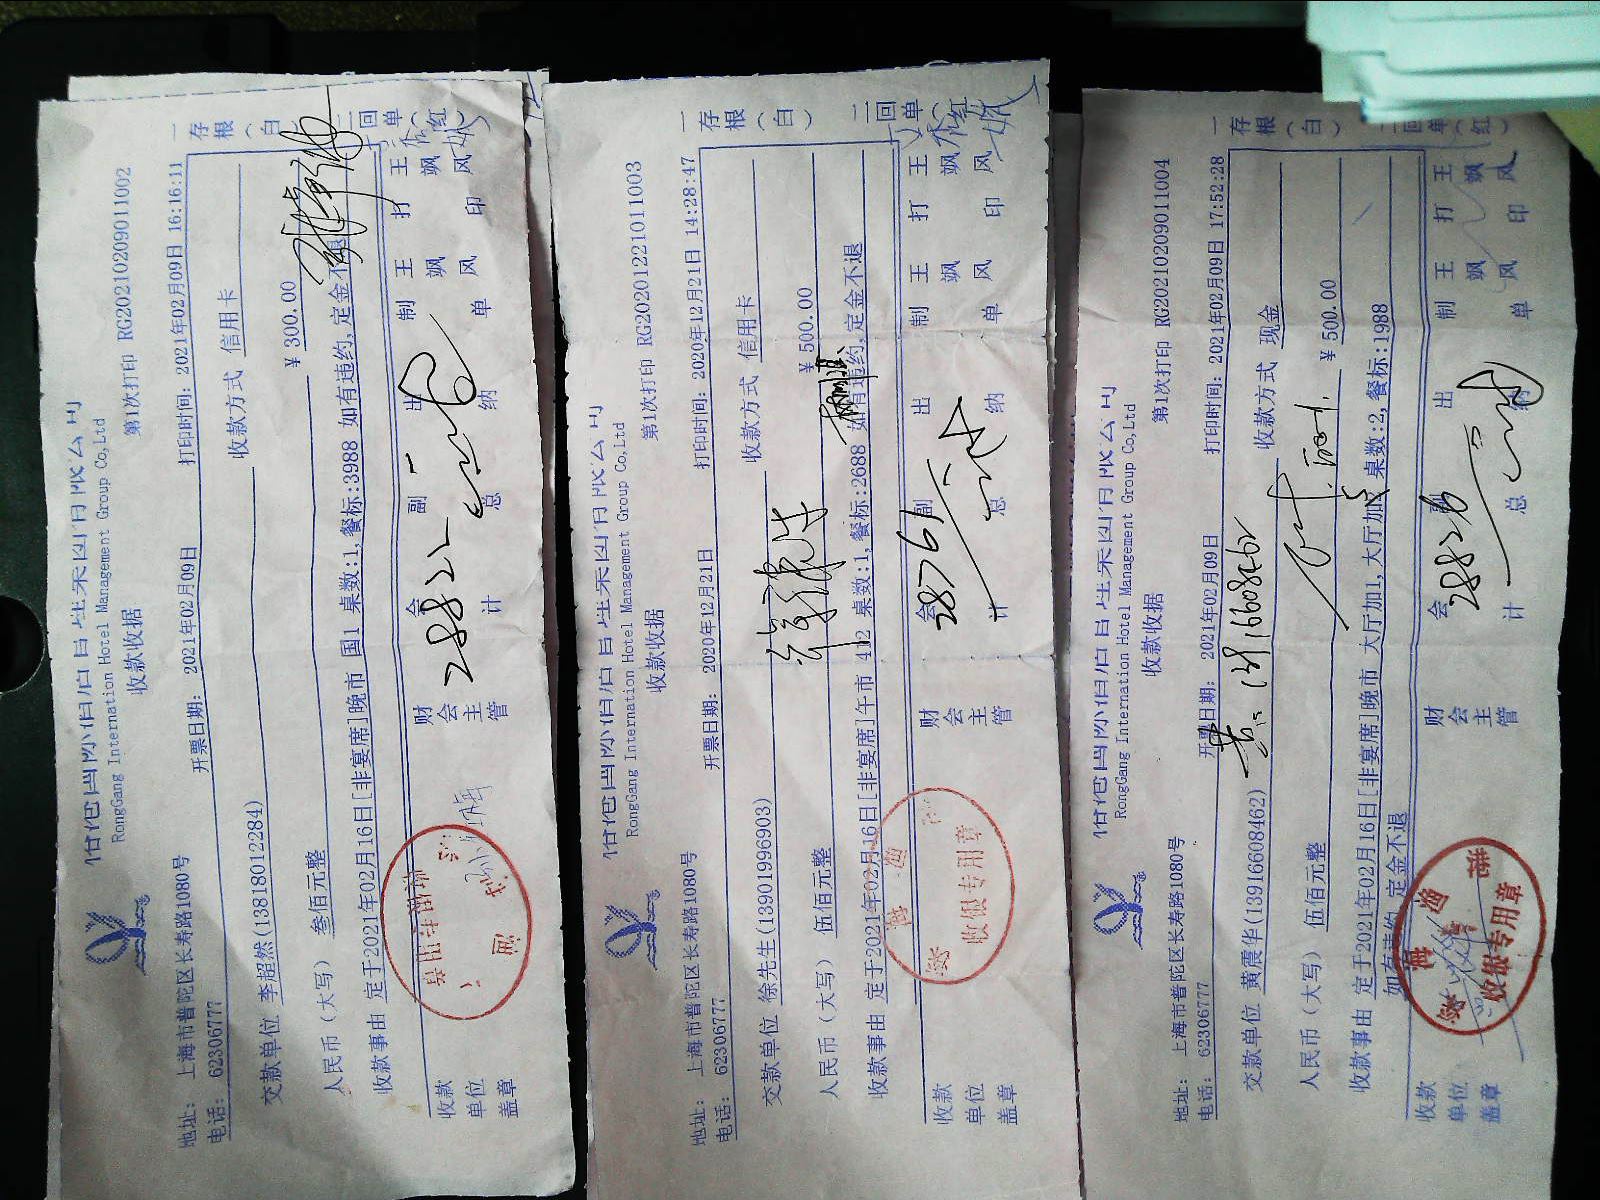 RongGang International Hotel Management Group Co,Ltd
收款收据
第1次打印 RG2021020901​1002
地址: 上海市普陀区长寿路1080号
电话: 62306777
开票日期: 2021年02月09日
打印时间: 2021年02月09日 16:16:11
交款单位 李超然(13818012284)
收款方式 信用卡
人民币（大写） 叁佰元整
￥300.00
收款事由 定于2021年02月16日[非宴席]晚市 国1 桌数:1,餐标:3988 如有违约,定金不退
一存根（白）
二回单（红）
收款单位盖章
财会主管
会计
28822
副总
出纳
制单
王飒风
打印
王飒风
RongGang International Hotel Management Group Co,Ltd
收款收据
第1次打印 RG20201221011003
地址: 上海市普陀区长寿路1080号
电话: 62306777
开票日期: 2020年12月21日
打印时间: 2020年12月21日 14:28:47
交款单位 徐先生(13901996903)
收款方式 信用卡
人民币（大写） 伍佰元整
￥500.00
收款事由 定于2021年02月16日[非宴席]午市 412 桌数:1,餐标:2688 如有违约,定金不退
一存根（白）
二回单（红）
收款单位盖章
收银专用章
财会主管
会计
28761
副总
出纳
制单
王飒风
打印
王飒风
RongGang International Hotel Management Group Co,Ltd
收款收据
第1次打印 RG20210209011004
地址: 上海市普陀区长寿路1080号
电话: 62306777
开票日期: 2021年02月09日
打印时间: 2021年02月09日 17:52:28
交款单位 黄震华(13916608462)
收款方式 现金
13916608462
人民币（大写） 伍佰元整
￥500.00
收款事由 定于2021年02月16日[非宴席]晚市 大厅加1,大厅加 桌数:2,餐标:1988
如有违约,定金不退
一存根（白）
二回单（红）
收款单位盖章
收银专用章
财会主管
会计
28826
副总
出纳
制单
王飒风
打印
王飒风